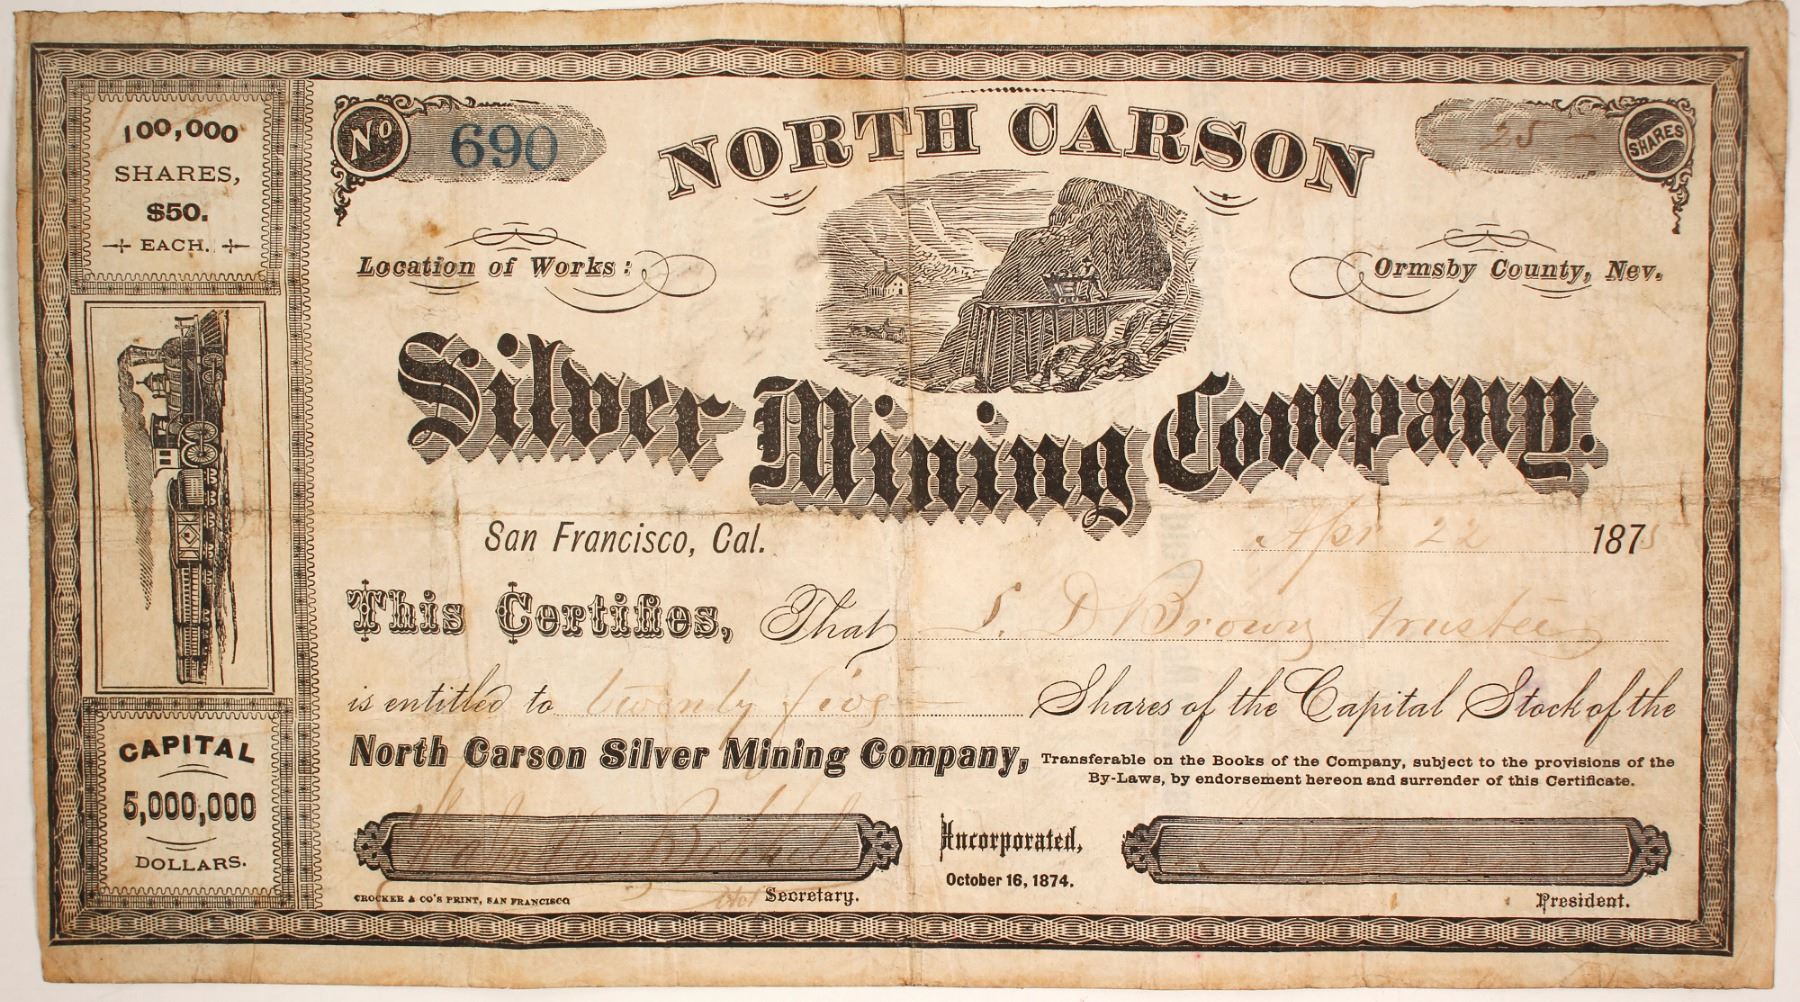 100,000
SHARES,
$50.
EACH.
CAPITAL
5,000,000
DOLLARS.
No 690
NORTH CARSON
25 SHARES
Location of Works:
Ormsby County, Nev.
Silver Mining Company.
San Francisco, Cal. Apr 22 1875
This Certifies, That S. D Brown trustee
is entitled to twenty five Shares of the Capital Stock of the
North Carson Silver Mining Company, Transferable on the Books of the Company, subject to the provisions of the
By-Laws, by endorsement hereon and surrender of this Certificate.
Incorporated,
October 16, 1874.
CROCKER & CO'S PRINT, SAN FRANCISCO
Secretary.
President.